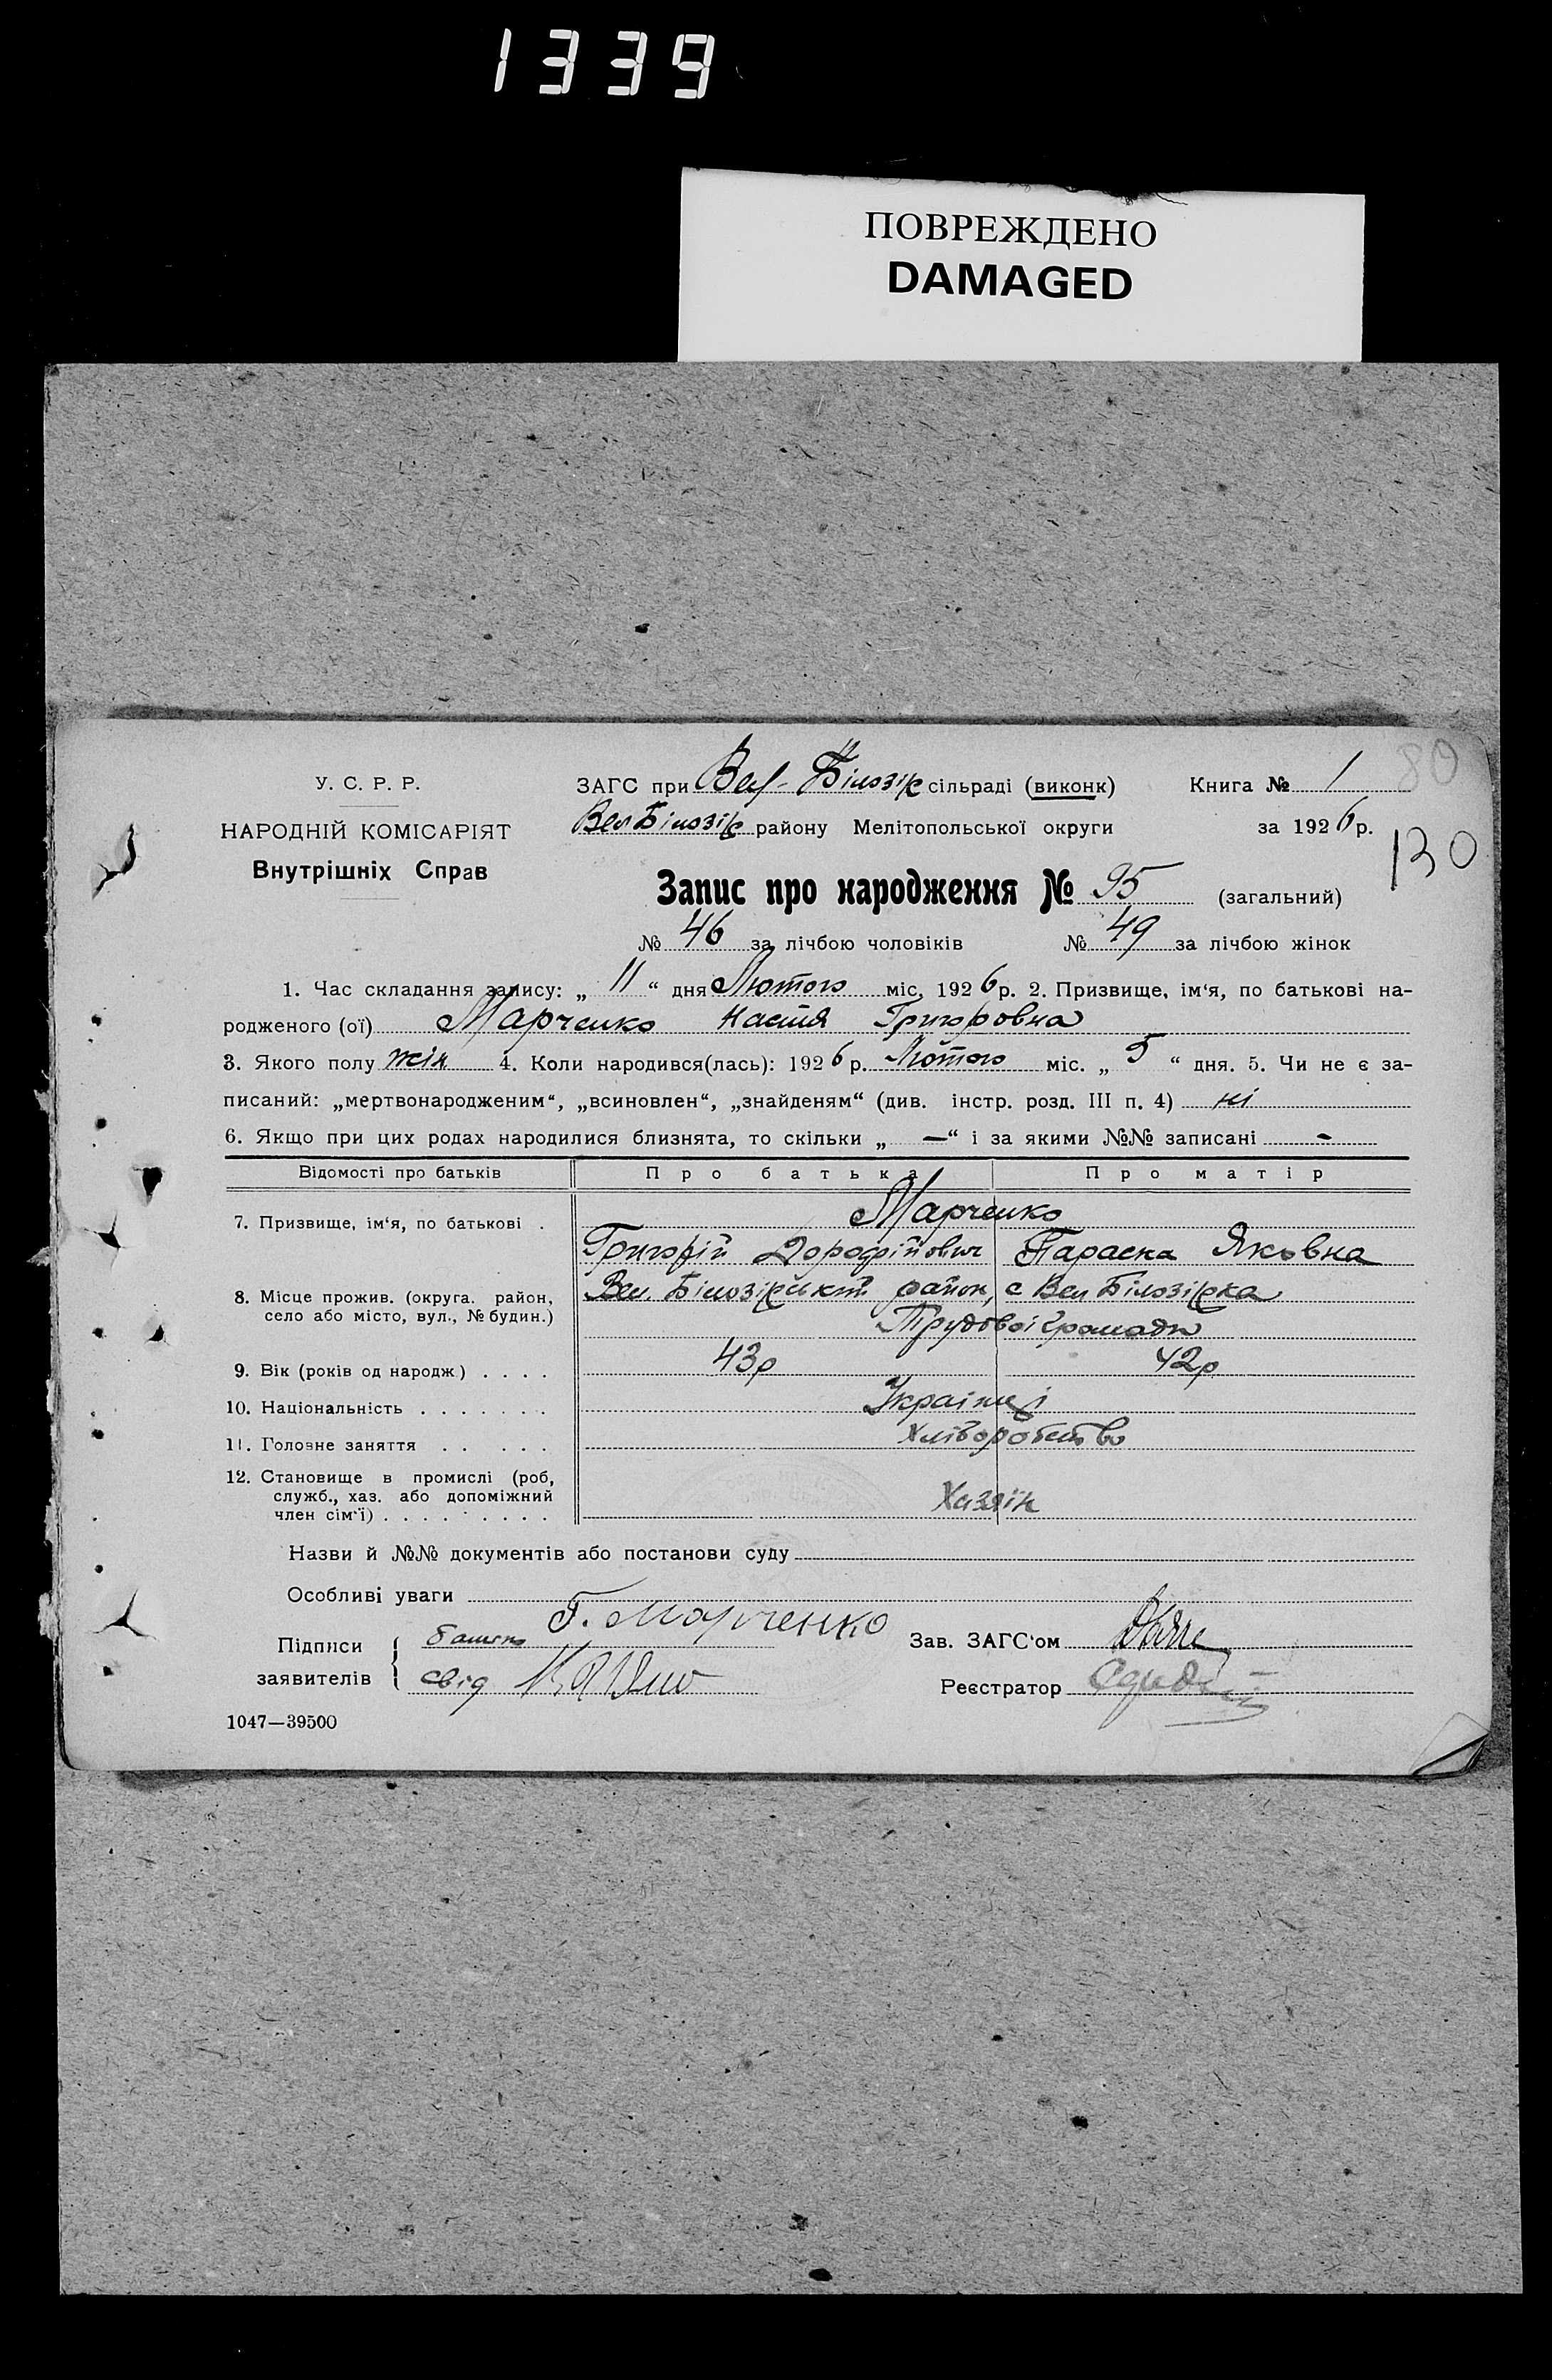 1339
ПОВРЕЖДЕНО
DAMAGED
80
У. С. Р. Р.
ЗАГС при Вел-Білозір сільраді (виконк) Книга № 1
НАРОДНІЙ КОМІСАРІЯТ
Вел Білозір району Мелітопольської округи за 1926 р.
130
Внутрішніх Справ
Запис про народження № 95 (загальний)
№ 46 за лічбою чоловіків № 49 за лічбою жінок
1. Час складання запису: „ 11 “ дня Лютого міс. 1926 р. 2. Призвище, ім‘я, по батькові на-
родженого (ої) Марченко Настя Григоровна
3. Якого полу жін 4. Коли народився(лась): 1926 р. Лютого міс. „ 5 “ дня. 5. Чи не є за-
писаний: „мертвонародженим“, „всиновлен“, „знайденям“ (див. інстр. розд. III п. 4) ні
6. Якщо при цих родах народилися близнята, то скільки „ — “ і за якими №№ записані -
Відомості про батьків Про батька Про матір
7. Призвище, ім‘я, по батькові . Марченко
Григорій Дорофійович Параска Яковна
8. Місце прожив. (округа. район, село або місто, вул., № будин.) Вел. Білозірський район, с Вел Білозірка
Трудової Громади
9. Вік (років од народж) . . . . 43р 42р
10. Національність . . . . . . . Українці
11. Головне заняття . . . . . Хліборобство
12. Становище в промислі (роб, служб., хаз. або допоміжний член сім‘ї) . . . . . . . . . Хазяїн
Назви й №№ документів або постанови суду
Особливі уваги
Підписи заявителів { батько Г. Марченко
Зав. ЗАГС‘ом
свід
Реєстратор
1047—39500